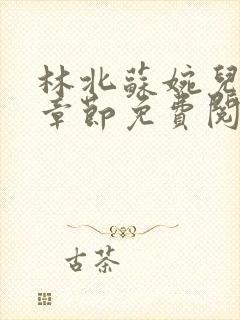 林北蘇婉兒
章節免費閱
古茶